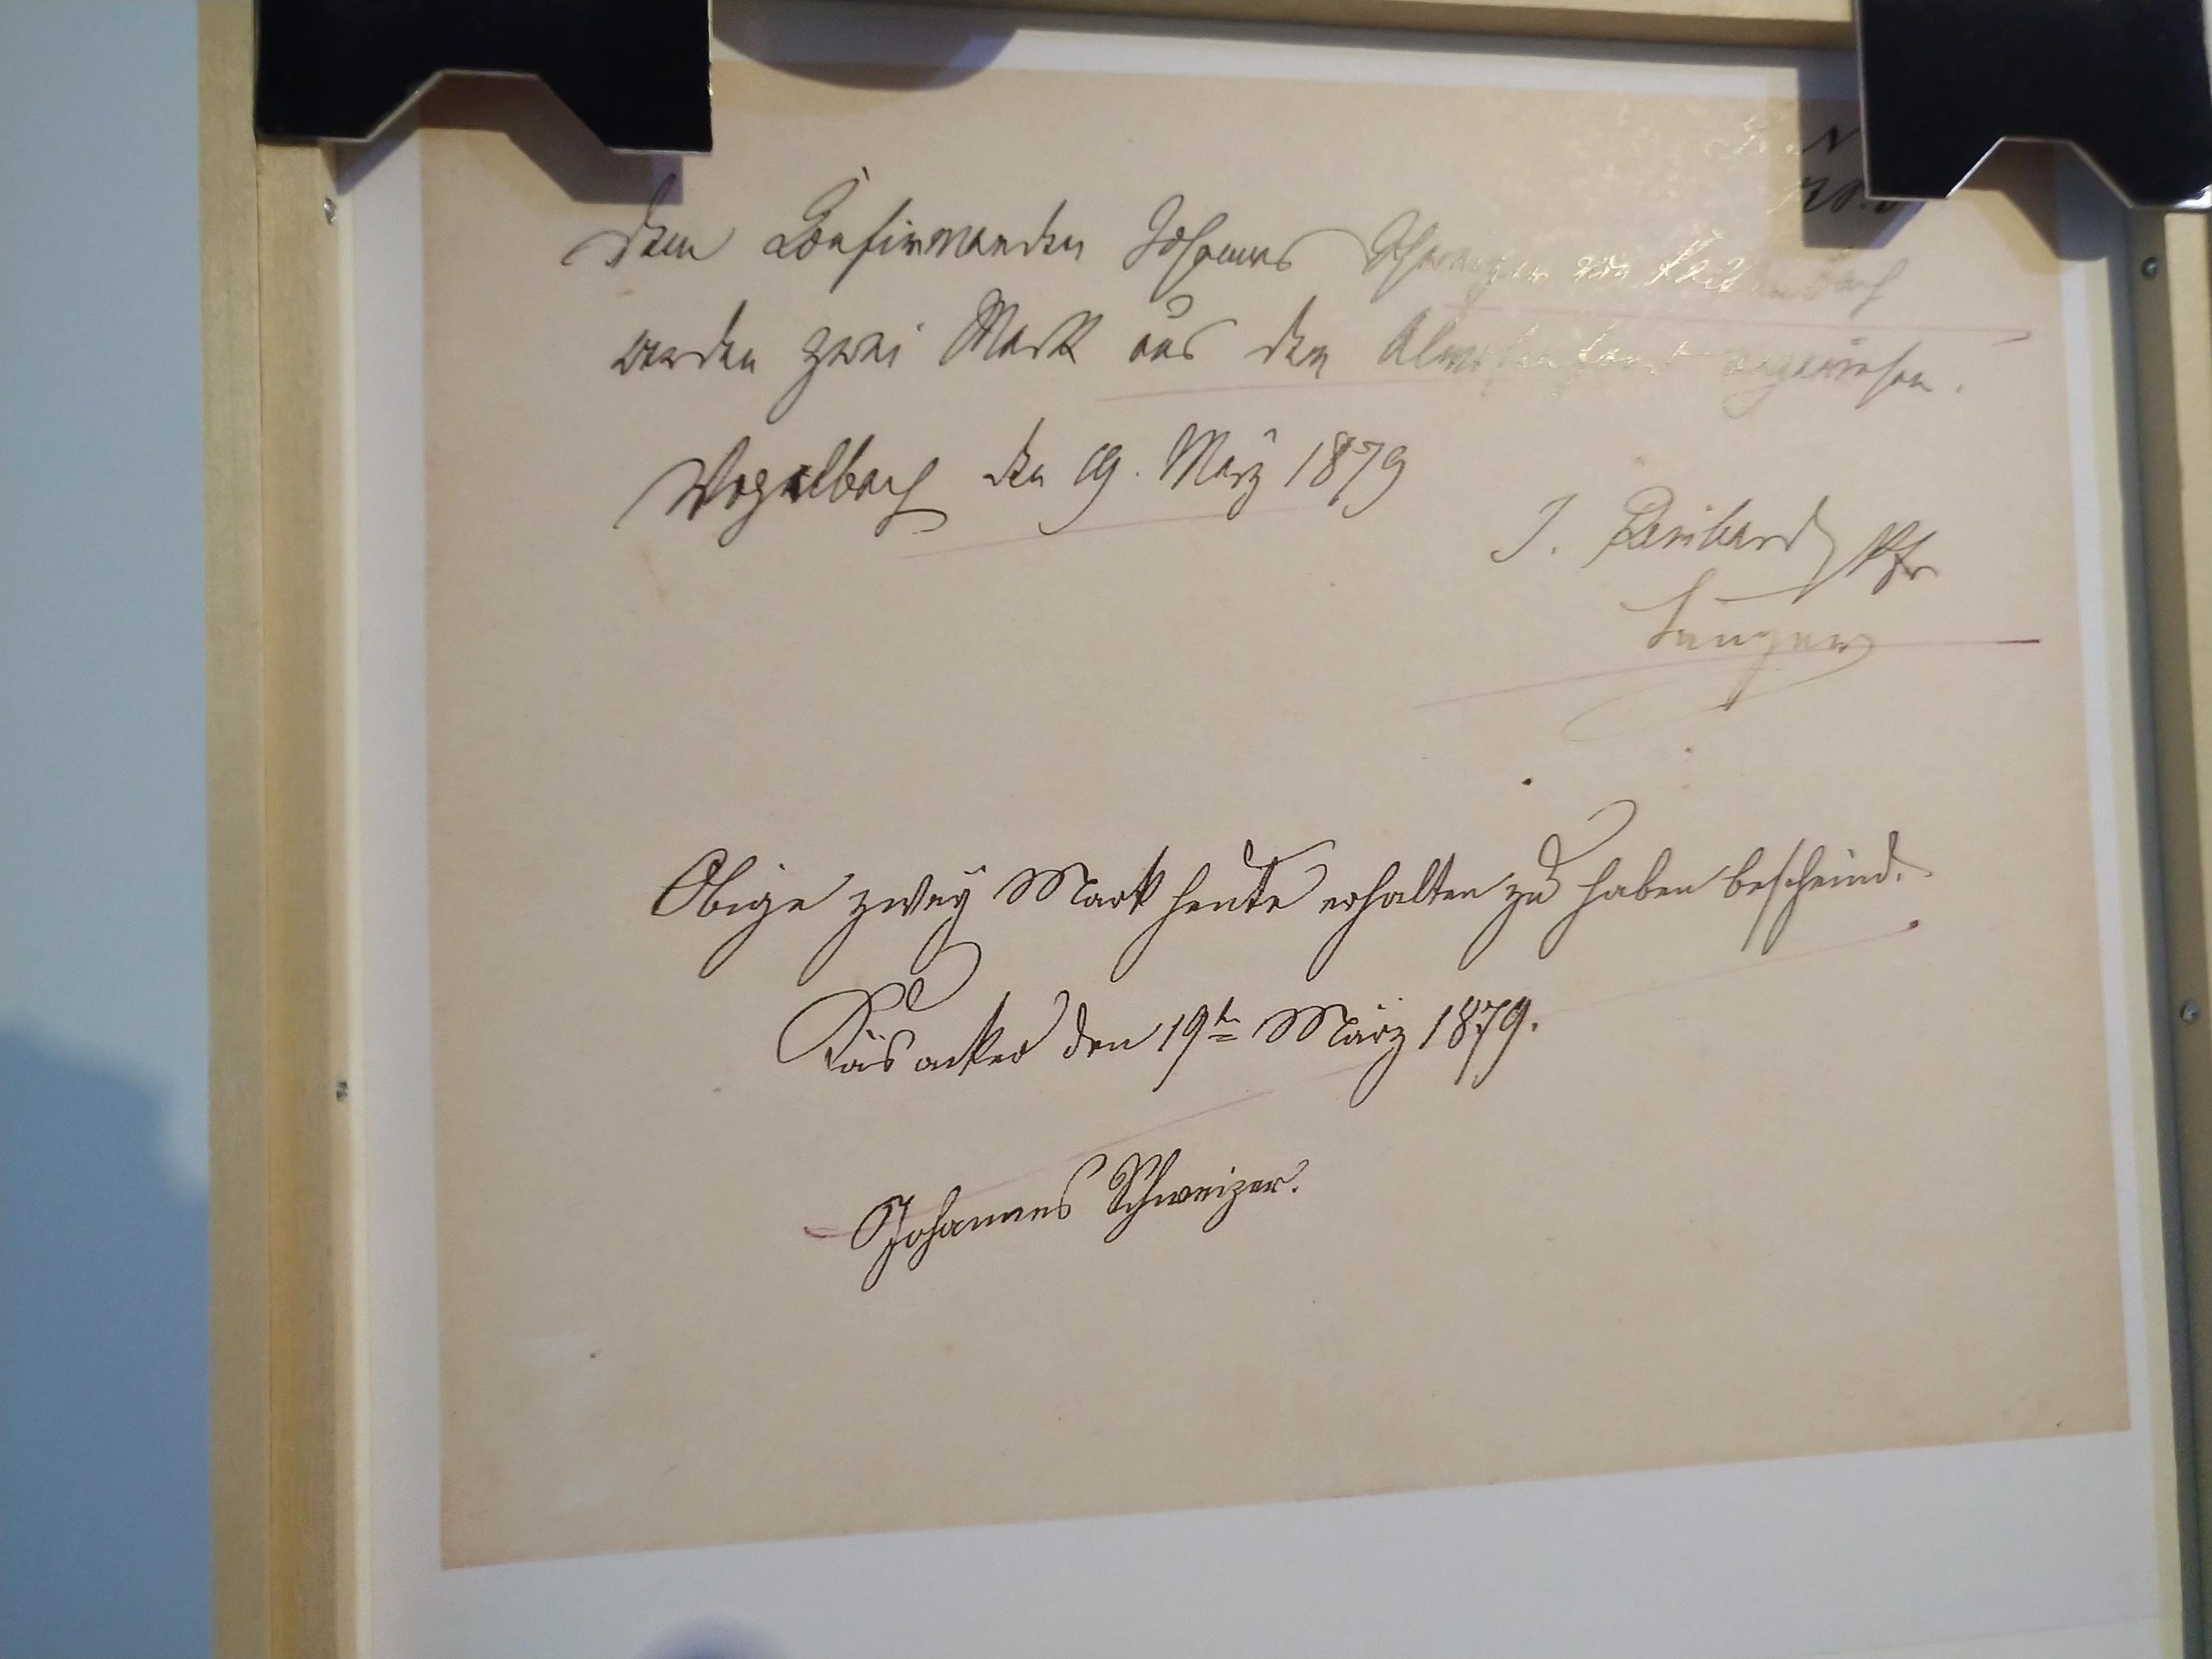 Dem Confirmanden Johannes Schweizer von
werden zwei Mark aus dem Almosenfond angewiesen.
Vogelbach den 19. März 1879
J. Reinhard Pfr
Obige zwey Mark heute erhalten zu haben bescheind.
Käsacker den 19t März 1879.
Johannes Schweizer.